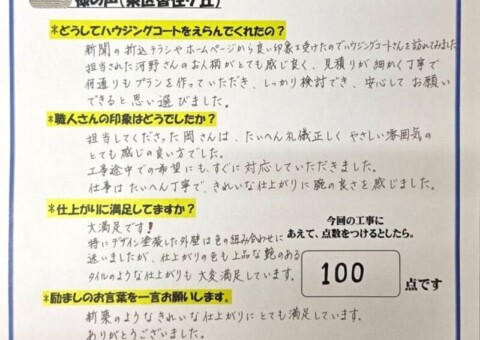 様の声(葵区曽任ヶ丘)
*どうしてハウジングコートをえらんでくれたの?
新聞の折込チラシやホームページから良い印象を受けたのでハウジングコートさんを訪れてみました。
担当された河野さんのお人柄がとても感じ良く、見積りが細かく丁寧で
何通りもプランを作っていただき、しっかり検討でき、安心してお願い
できると思い選びました。
*職人さんの印象はどうでしたか?
担当してくださった岡さんは、たいへん礼儀正しくやさしい雰囲気の
とても感じの良い方でした。
工事途中での希望にも、すぐに対応していただきました。
仕事はたいへん丁寧で、きれいな仕上がりに腕の良さを感じました。
*仕上がりに満足してますか?
大満足です!
特にデザイン塗装した外壁は色の組み合わせに
迷いましたが、仕上がりの色も上品な艶のある
タイルのような仕上がりも大変満足しています。
今回の工事に
あえて、点数をつけるとしたら。
100
点です
*励ましのお言葉を一言お願いします。
新築のようなきれいな仕上がりにとても満足しています。
ありがとうございました。